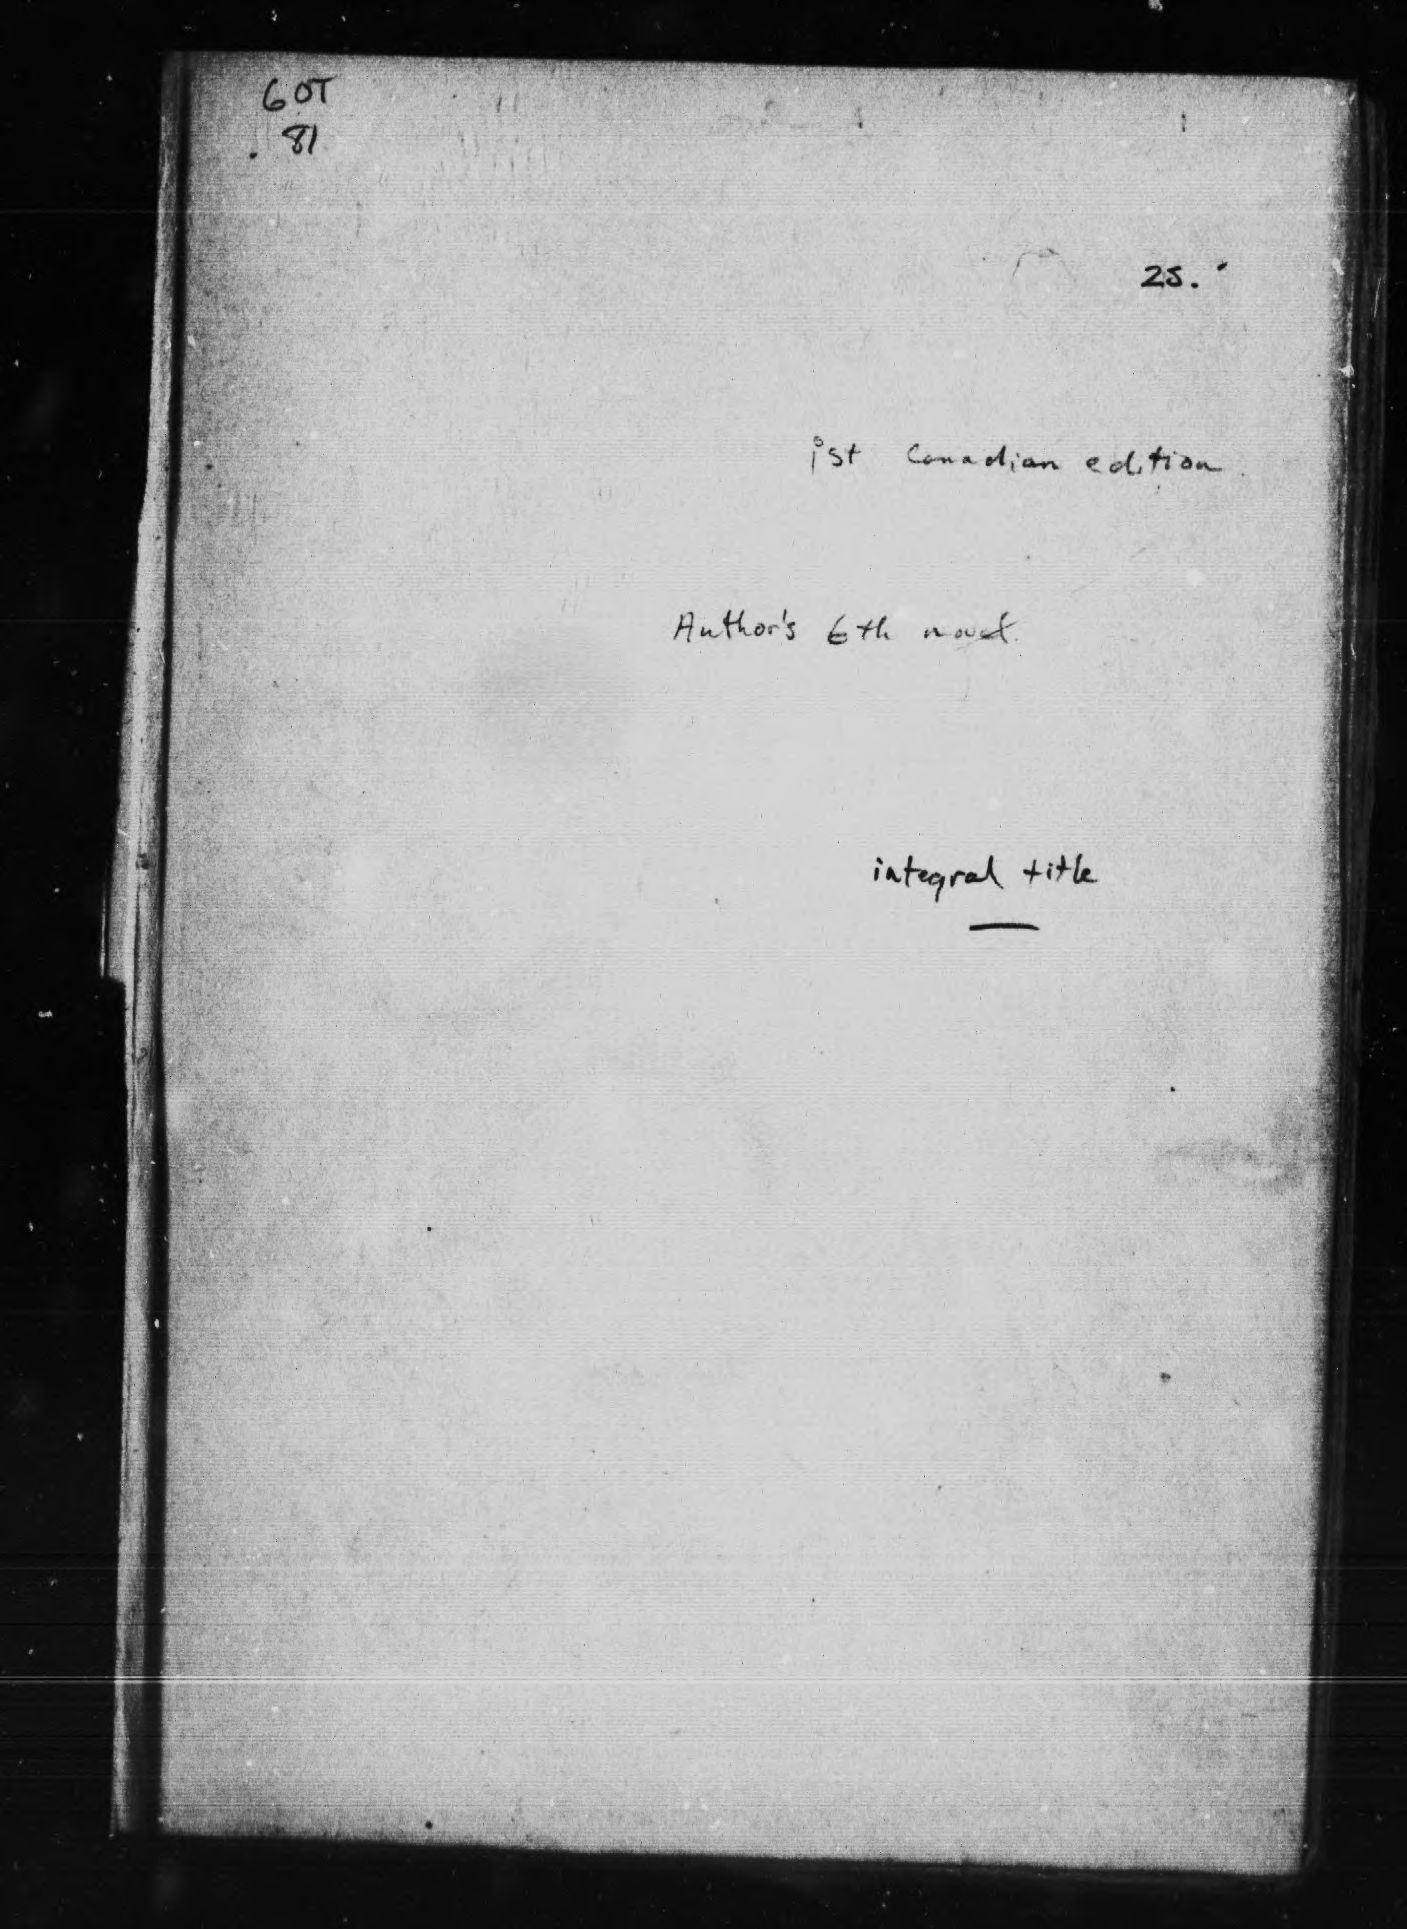 60T
81
25.
1st Canadian edition
Author's 6th novel
integral title